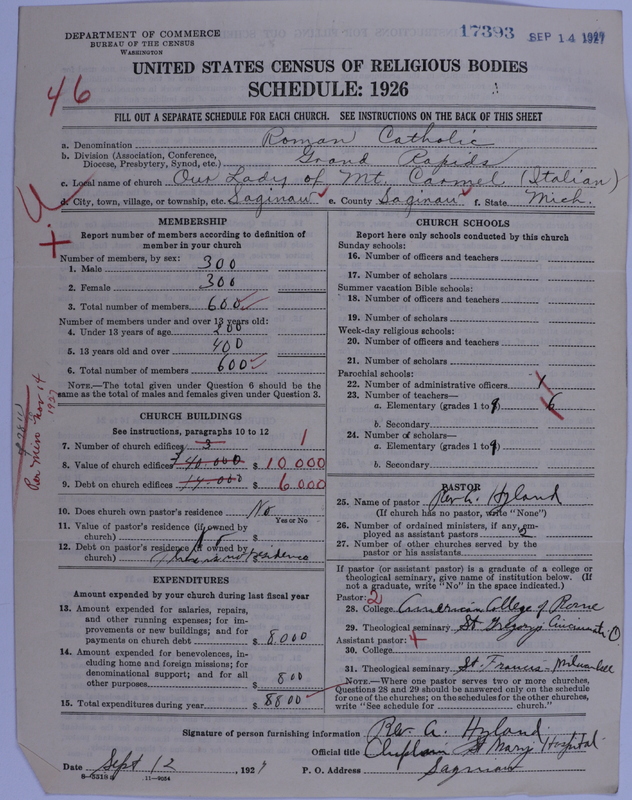 DEPARTMENT OF COMMERCE
BUREAU OF THE CENSUS
WASHINGTON
17393 SEP 14 1927
UNITED STATES CENSUS OF RELIGIOUS BODIES
SCHEDULE: 1926
46
FILL OUT A SEPARATE SCHEDULE FOR EACH CHURCH. SEE INSTRUCTIONS ON THE BACK OF THIS SHEET
a. Denomination Roman Catholic
b. Division (Association, Conference, Diocese, Presbytery, Synod, etc.) Grand Rapids
c. Local name of church Our Lady of Mt. Carmel (Italian)
d. City, town, village, or township, etc. Saginaw e. County Saginaw f. State Mich.
MEMBERSHIP
Report number of members according to definition of member in your church
Number of members, by sex:
1. Male 300
2. Female 300
3. Total number of members 600
Number of members under and over 13 years old:
4. Under 13 years of age 200
5. 13 years old and over 400
6. Total number of members 600
NOTE.—The total given under Question 6 should be the same as the total of males and females given under Question 3.
CHURCH BUILDINGS
See instructions, paragraphs 10 to 12
7. Number of church edifices 3 1
8. Value of church edifices $ 10 000
9. Debt on church edifices 14.000 $ 6 000
10. Does church own pastor's residence? No
Yes or No
11. Value of pastor's residence (if owned by church) No
12. Debt on pastor's residence (if owned by church) residence
EXPENDITURES
Amount expended by your church during last fiscal year
13. Amount expended for salaries, repairs, and other running expenses; for improvements or new buildings; and for payments on church debt $ 8000
14. Amount expended for benevolences, including home and foreign missions; for denominational support; and for all other purposes $ 800
15. Total expenditures during year $ 8800
CHURCH SCHOOLS
Report here only schools conducted by this church
Sunday schools:
16. Number of officers and teachers
17. Number of scholars
Summer vacation Bible schools:
18. Number of officers and teachers
19. Number of scholars
Week-day religious schools:
20. Number of officers and teachers
21. Number of scholars
Parochial schools:
22. Number of administrative officers 1
23. Number of teachers—
a. Elementary (grades 1 to 8) 6
b. Secondary
24. Number of scholars—
a. Elementary (grades 1 to 8)
b. Secondary
PASTOR
25. Name of pastor Rev. A. Hyland
(If church has no pastor, write "None")
26. Number of ordained ministers, if any, employed as assistant pastors 2
27. Number of other churches served by the pastor or his assistants
If pastor (or assistant pastor) is a graduate of a college or theological seminary, give name of institution below. (If not a graduate, write "No" in the space indicated.)
Pastor: 2
28. College American College of Rome
29. Theological seminary St. Gregory Cincinnati O
Assistant pastor: +
30. College
31. Theological seminary St. Francis - Milwaukee
NOTE.—Where one pastor serves two or more churches, Questions 28 and 29 should be answered only on the schedule for one of the churches; on the schedules for the other churches, write "See schedule for church."
Signature of person furnishing information Rev. A. Hyland
Official title Chaplain St Marys Hospital
Date Sept 12, 1927 P. O. Address Saginaw
8—5318a 11—9054